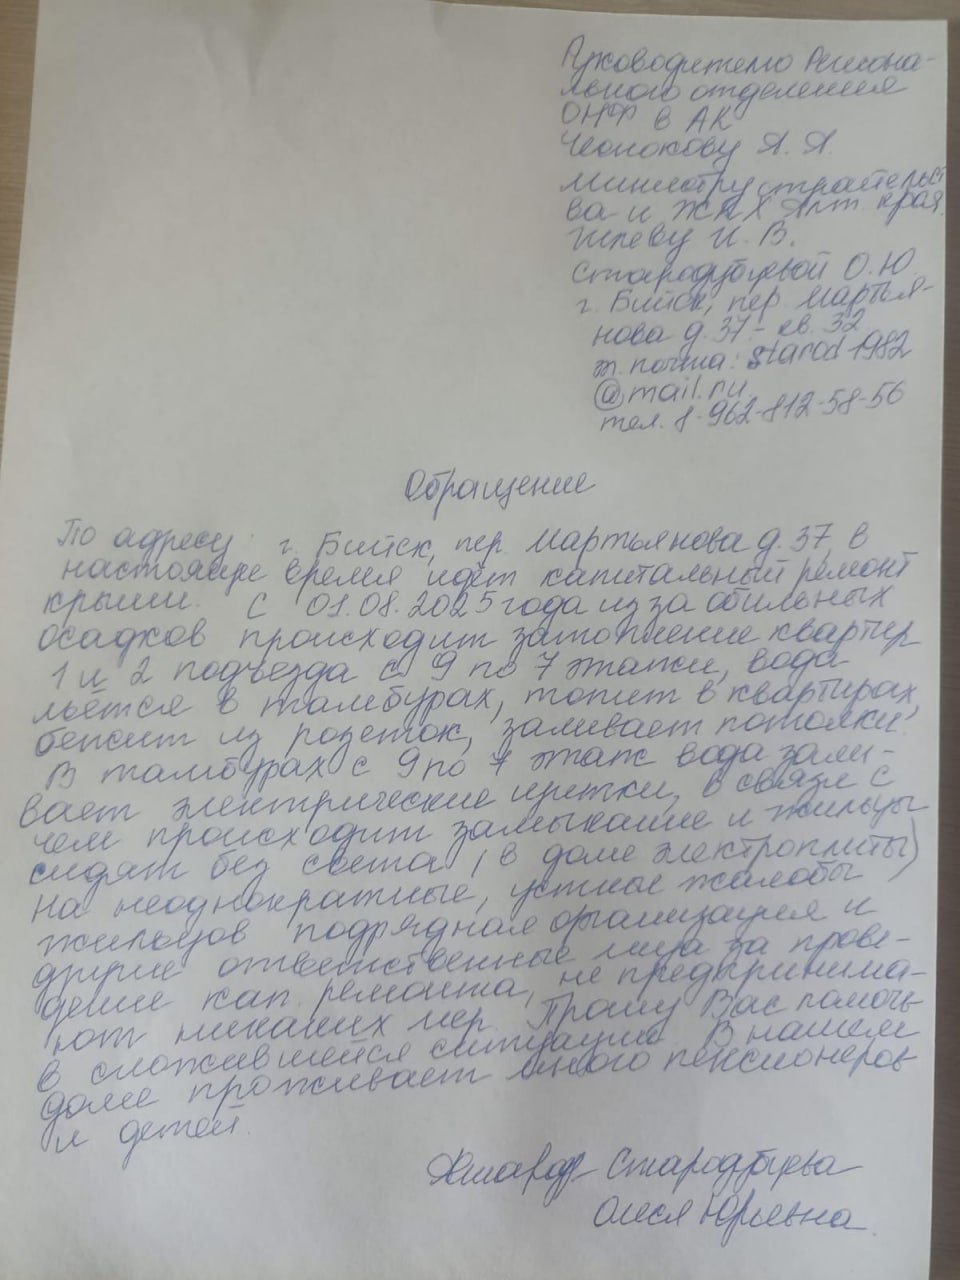 Руководителю Региона-
льного отделения
ОНФ в АК
Чеонокову Я. Я.
министру строительст
ва и ЖКХ Алт. края
Гилеву И. В.
Стародубцевой О.Ю.
г. Бийск, пер. Мартья-
нова д. 37 - кв. 32
эл. почта: starod1982
@mail.ru
тел. 8-962-812-58-56
Обращение
По адресу: г. Бийск, пер. Мартьянова д. 37, в
настоящее время идёт капитальный ремонт
крыши. С 01.08.2025 года из за обильных
осадков происходит затопление квартир
1 и 2 подъезда с 9 по 7 этажи, вода
льётся в тамбурах, топит в квартирах,
бежит из розеток, заливает потолки.
В тамбурах с 9 по 7 этаж вода зали-
вает электрические щитки, в связи с
чем происходит замыкание и жильцы
сидят без света, (в доме электроплиты)
на неоднократные, устные жалобы
жильцов подрядная организация и
другие ответственные лица за прове-
дение кап. ремонта, не предпринима-
ют никаких мер. Прошу Вас помочь
в сложившейся ситуации. В нашем
доме проживает много пенсионеров
и детей.
Стародубцева
Олеся Юрьевна